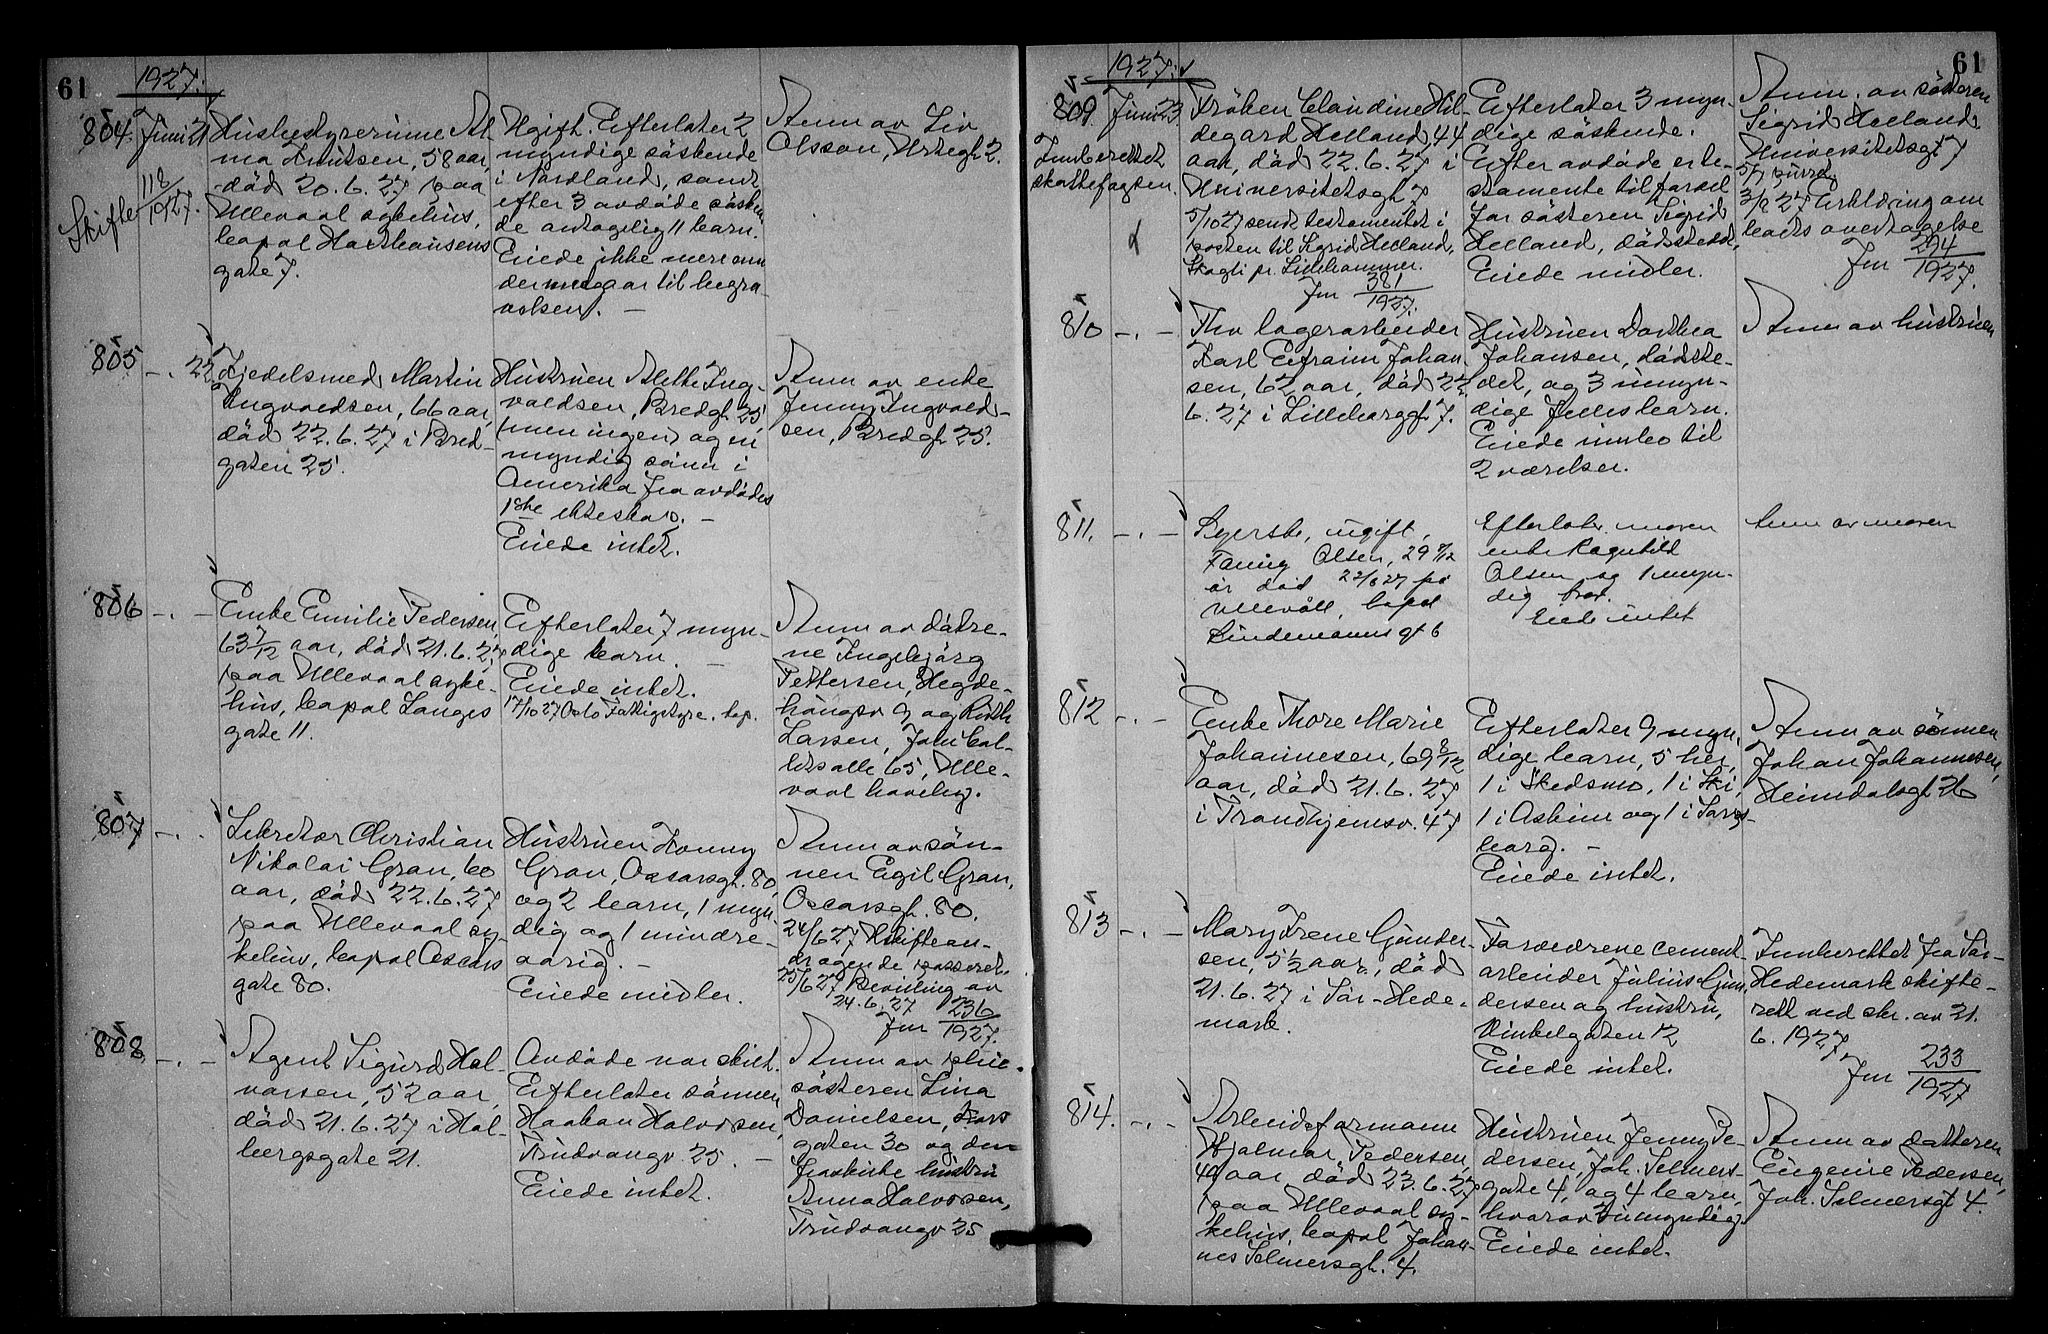 61
1927.
804. Juni 21
Skifter 118/1927.
Husbestyrerinne Al-
ma Knutsen, 58 aar,
död 20.6.27 paa
Ullevaal sykehus,
bopæl Harthausens
gate 7.
Ugift. Efterlater 2
myndige söskende
i Nordland, samt
efter 3 avdöde sösken-
de antagelig 11 barn.
Eiede ikke mere enn
der medgaar til begra-
velsen. —
Anm av Liv
Olsson, Urtegt 2.
805 —. 22
Kjedelsmed Martin
Ingvaldsen, 66 aar,
död 22.6.27 i Bred-
gaten 25.
Hustruen Alette Ing-
valdsen, Bredgt. 25,
(men ingen) og en
myndig sönn i
Amerika fra avdödes
1ste ekteskap. —
Eiede intet.
Anm av enke
Jenny Ingvald-
sen, Bredgt 25.
806 —. —
Enke Emilie Pedersen,
63 /12 aar, död 21.6.27
paa Ullevaal syke-
hus, bopæl Langes
gate 11.
Efterlater 7 myn-
dige barn. —
Eiede intet.
17/10 27 Oslo Fattigstyre. kop.
Anm av dötre-
ne Ingebjörg
Pettersen, Hegde-
haugsv 9 og Ruth
Larsen, John Col-
letsalle 65, Ulle-
vaal haveby.
807 —. .
Sekretær Christian
Nikolai Gran, 60
aar, död 22.6.27
paa Ullevaal sy-
kehus, bopæl Oscars
gate 80.
Hustruen Fanny
Gran, Oscarsgt. 80,
og 2 barn, 1 myn-
dig og 1 mindre-
aarig. —
Eiede midler.
Anm av sön-
nen Egil Gran,
Oscarsgt. 80.
24/6 27 Uskiftean-
dragende passeret.
25/6 27 Bevilling av
24.6.27
Jnr 236/1927.
808. —. —
Agent Sigurd Hal-
vorsen, 52 aar,
död 21.6.27 i Hol-
bergsgate 21.
Avdöde var skilt.
Efterlater sönnen
Haakon Halvorsen,
Trudvangv. 25. —
Eiede intet.
Anm av pleie-
sösteren Lina
Danielsen,
gaten 30 og den
fraskilte hustru
Anna Halvorsen,
Trudvangv 25
61
1927.
809. Juni 23.
Innberettet
skattefogden.
Fröken Claudine Hil-
degard Helland, 44
aar, död 22.6.27 i
Universitetsgt 7
5/10 27 sendt testamentet i
posten til Sigrid Helland,
Skogli pr. Lillehammer.
Jnr 381/1927.
Efterlater 3 myn-
dige söskende.
Efter avdöde er te-
stamente til fordel
for sösteren Sigrid
Helland, dödstedet,
Eiede midler.
Anm. av sösteren
Sigrid Helland
Universitetsgt 7
5/7 purret.
3/8 27 Erklæring om
boets overtagelse
Jnr 294/1927.
810 —. —
Fhv lagerarbeider
Karl Efraim Johan-
sen, 62 aar, död 22.
6.27 i Lilleborggt 7.
Hustruen Dorthea
Johansen, dödste-
det, og 3 umyn-
dige fælles barn.
Eiede innbo til
2 værelser.
Anm av hustruen
811. —. —
Syerske, ugift,
Fanny Olsen, 29 /12
år död 22/6 27 på
Ullevål, bopæl
Lindemanns gt 6
Efterlater moren
enke Ragnhild
Olsen og 1 myn-
dig bror.
Eiede intet
Anm av moren
812 —. —
Enke Thore Marie
Johannesen, 69 8/12
aar, död 21.6.27
i Trondhjemsv. 47
Efterlater 9 myn-
dige barn, 5 her,
1 i Skedsmo, 1 i Ski,
1 i Askim og 1 i Sarps-
borg. —
Eiede intet.
Anm av sönnen
Johan Johannesen,
Heimdalsgt 26
813 —. —
Mary Irene Gunder-
sen, 5½ aar, död
21.6.27 i Sör-Hede-
mark.
Forældrene cement-
arbeider Julius Gun-
dersen og hustru,
Vinkelgaten 12
Eiede intet.
Innberettet fra Sör-
Hedemark skifte-
rett ved skr. av 21.
6.1927
Jnr 233/1927
814. —. —
Arbeidsformann
Hjalmar Pedersen,
49 aar, död 23.6.27
paa Ullevaal sy-
kehus, bopæl Johan-
nes Selmersgt. 4.
Hustruen Jenny Pe-
dersen, Joh. Selmers-
gate 4, og 4 barn,
hvorav 3 umyndig.
Eiede intet.
Anm av datteren
Eugenie Pedersen,
Joh. Selmersgt 4.